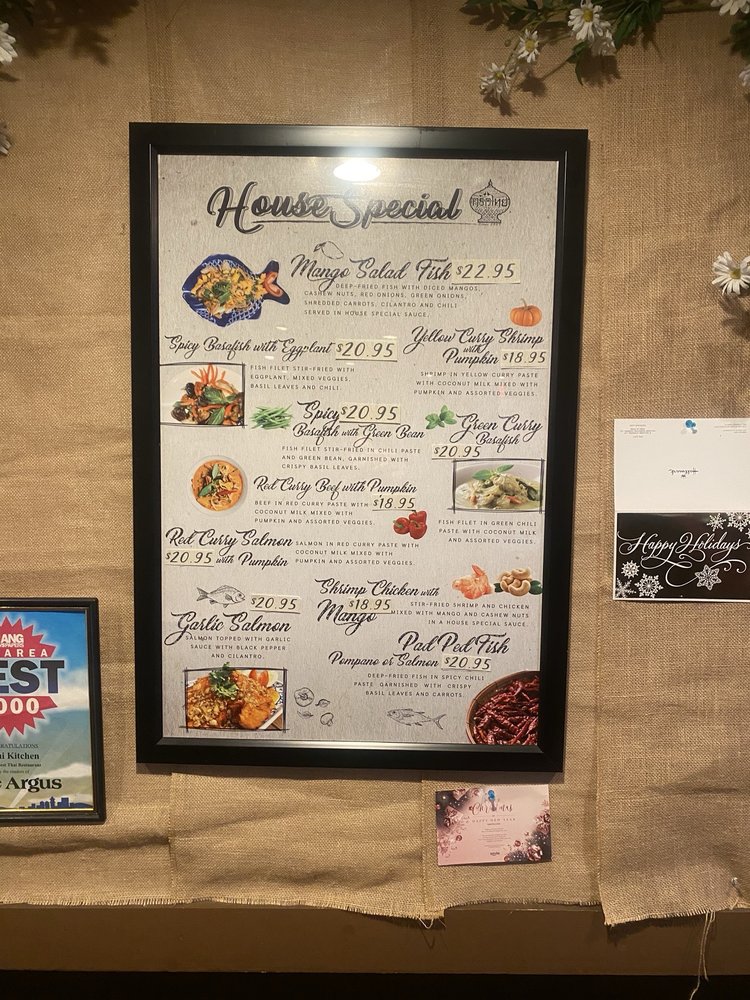 House Special
ครัวไทย
Mango Salad Fish $22.95
DEEP-FRIED FISH WITH DICED MANGOS,
CASHEW NUTS, RED ONIONS, GREEN ONIONS,
SHREDDED CARROTS, CILANTRO AND CHILI
SERVED IN HOUSE SPECIAL SAUCE.
Spicy Basafish with Eggplant $20.95
FISH FILET STIR-FRIED WITH
EGGPLANT, MIXED VEGGIES,
BASIL LEAVES AND CHILI.
Yellow Curry Shrimp
with
Pumpkin $18.95
SHRIMP IN YELLOW CURRY PASTE
WITH COCONUT MILK MIXED WITH
PUMPKIN AND ASSORTED VEGGIES.
Spicy $20.95
Basafish with Green Bean
FISH FILET STIR-FRIED IN CHILI PASTE
AND GREEN BEAN, GARNISHED WITH
CRISPY BASIL LEAVES.
Green Curry
Basafish
$20.95
FISH FILET IN GREEN CHILI
PASTE WITH COCONUT MILK
AND ASSORTED VEGGIES.
Red Curry Beef with Pumpkin
BEEF IN RED CURRY PASTE WITH $18.95
COCONUT MILK MIXED WITH
PUMPKIN AND ASSORTED VEGGIES.
Red Curry Salmon
$20.95 with Pumpkin
SALMON IN RED CURRY PASTE WITH
COCONUT MILK MIXED WITH
PUMPKIN AND ASSORTED VEGGIES.
Shrimp Chicken with
$18.95
Mango
STIR-FRIED SHRIMP AND CHICKEN
MIXED WITH MANGO AND CASHEW NUTS
IN A HOUSE SPECIAL SAUCE.
$20.95
Garlic Salmon
SALMON TOPPED WITH GARLIC
SAUCE WITH BLACK PEPPER
AND CILANTRO.
Pad Ped Fish
Pompano or Salmon $20.95
DEEP-FRIED FISH IN SPICY CHILI
PASTE GARNISHED WITH CRISPY
BASIL LEAVES AND CARROTS.
Hallmark
Happy Holidays
ANG
NEWSPAPERS
AREA
EST
000
Kitchen
est Thai Restaurant
the readers of
Argus
& HAPPY NEW YEAR